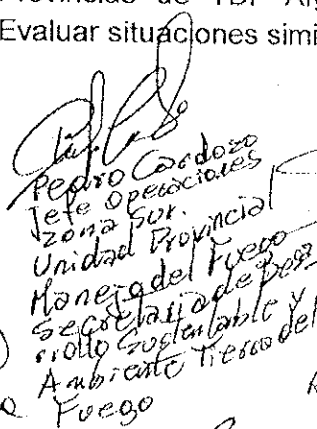 Provincias de TDF
Evaluar situaciones simi
Pedro Cardozo
Jefe Operaciones
Zona Sur.
Unidad Provincial
Manejo del Fuego
Secretaria de Desa
rrollo Sustentable y
Ambiente Tierra del
Fuego